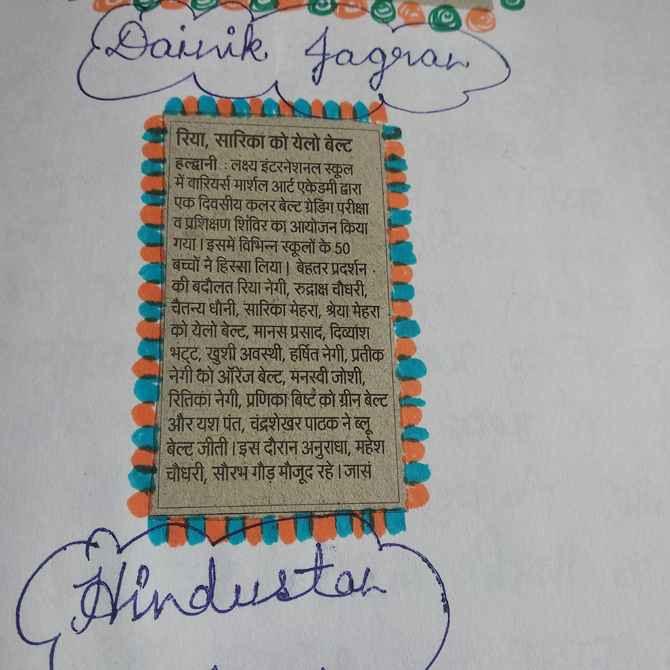 Dainik Jagran
रिया, सारिका को येलो बेल्ट
हल्द्वानी : लक्ष्य इंटरनेशनल स्कूल
में वारियर्स मार्शल आर्ट एकेडमी द्वारा
एक दिवसीय कलर बेल्ट ग्रेडिंग परीक्षा
व प्रशिक्षण शिविर का आयोजन किया
गया। इसमें विभिन्न स्कूलों के 50
बच्चों ने हिस्सा लिया। बेहतर प्रदर्शन
की बदौलत रिया नेगी, रुद्राक्ष चौधरी,
चैतन्य धौनी, सारिका मेहरा, श्रेया मेहरा
को येलो बेल्ट, मानस प्रसाद, दिव्यांश
भट्ट, खुशी अवस्थी, हर्षित नेगी, प्रतीक
नेगी को ऑरेंज बेल्ट, मनस्वी जोशी,
रितिका नेगी, प्रणिका बिष्ट को ग्रीन बेल्ट
और यश पंत, चंद्रशेखर पाठक ने ब्लू
बेल्ट जीती। इस दौरान अनुराधा, महेश
चौधरी, सौरभ गौड़ मौजूद रहे। जासं
Hindustan